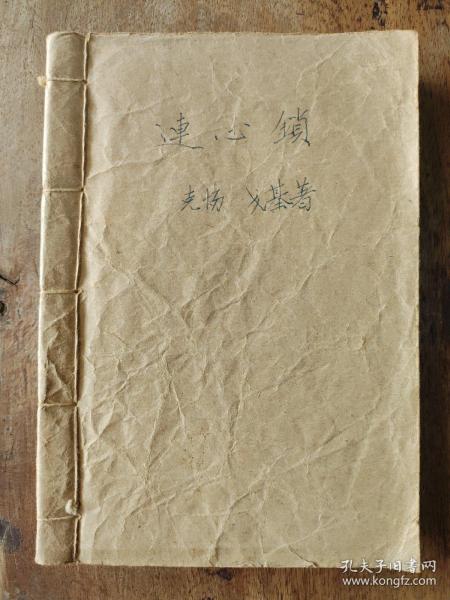 連心鎖
克扬 戈基著
孔夫子旧书网
www.kongfz.com